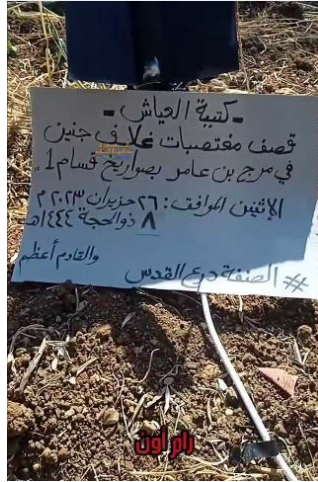 - كتيبة العياش -
قصف مغتصبات غلاف جنين
في مرج بن عامر بصواريخ قسام 1 ..
الإثنين الموافق: ٢٦ حزيران ٢٠٢٣ م
٨ ذو الحجة ١٤٤٤هـ
والقادم أعظم
# الضفة درع القدس
رام أون